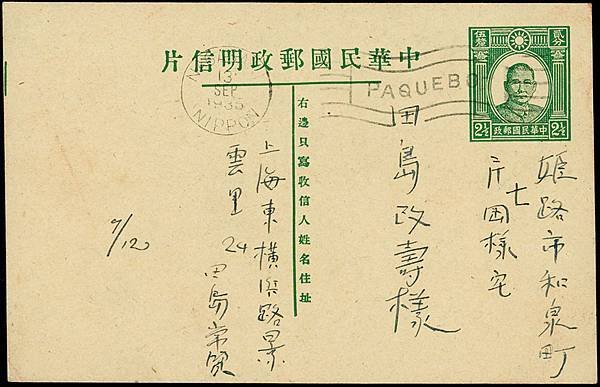 中華民國郵政明信片
貳分
伍釐
2½
2½
中華民國郵政
13
SEP
1935
NIPPON
PAQUEBO
姫路市和泉町
七
片岡様宅
田島政壽様
右邊只寫收信人姓名住址
上海東横浜路景
雲里 24
田島
9/12